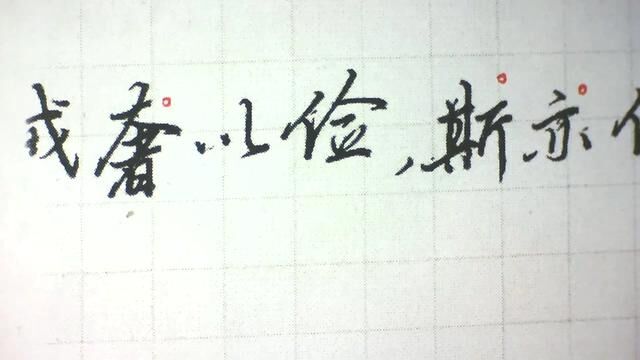 戒奢以俭,斯亦